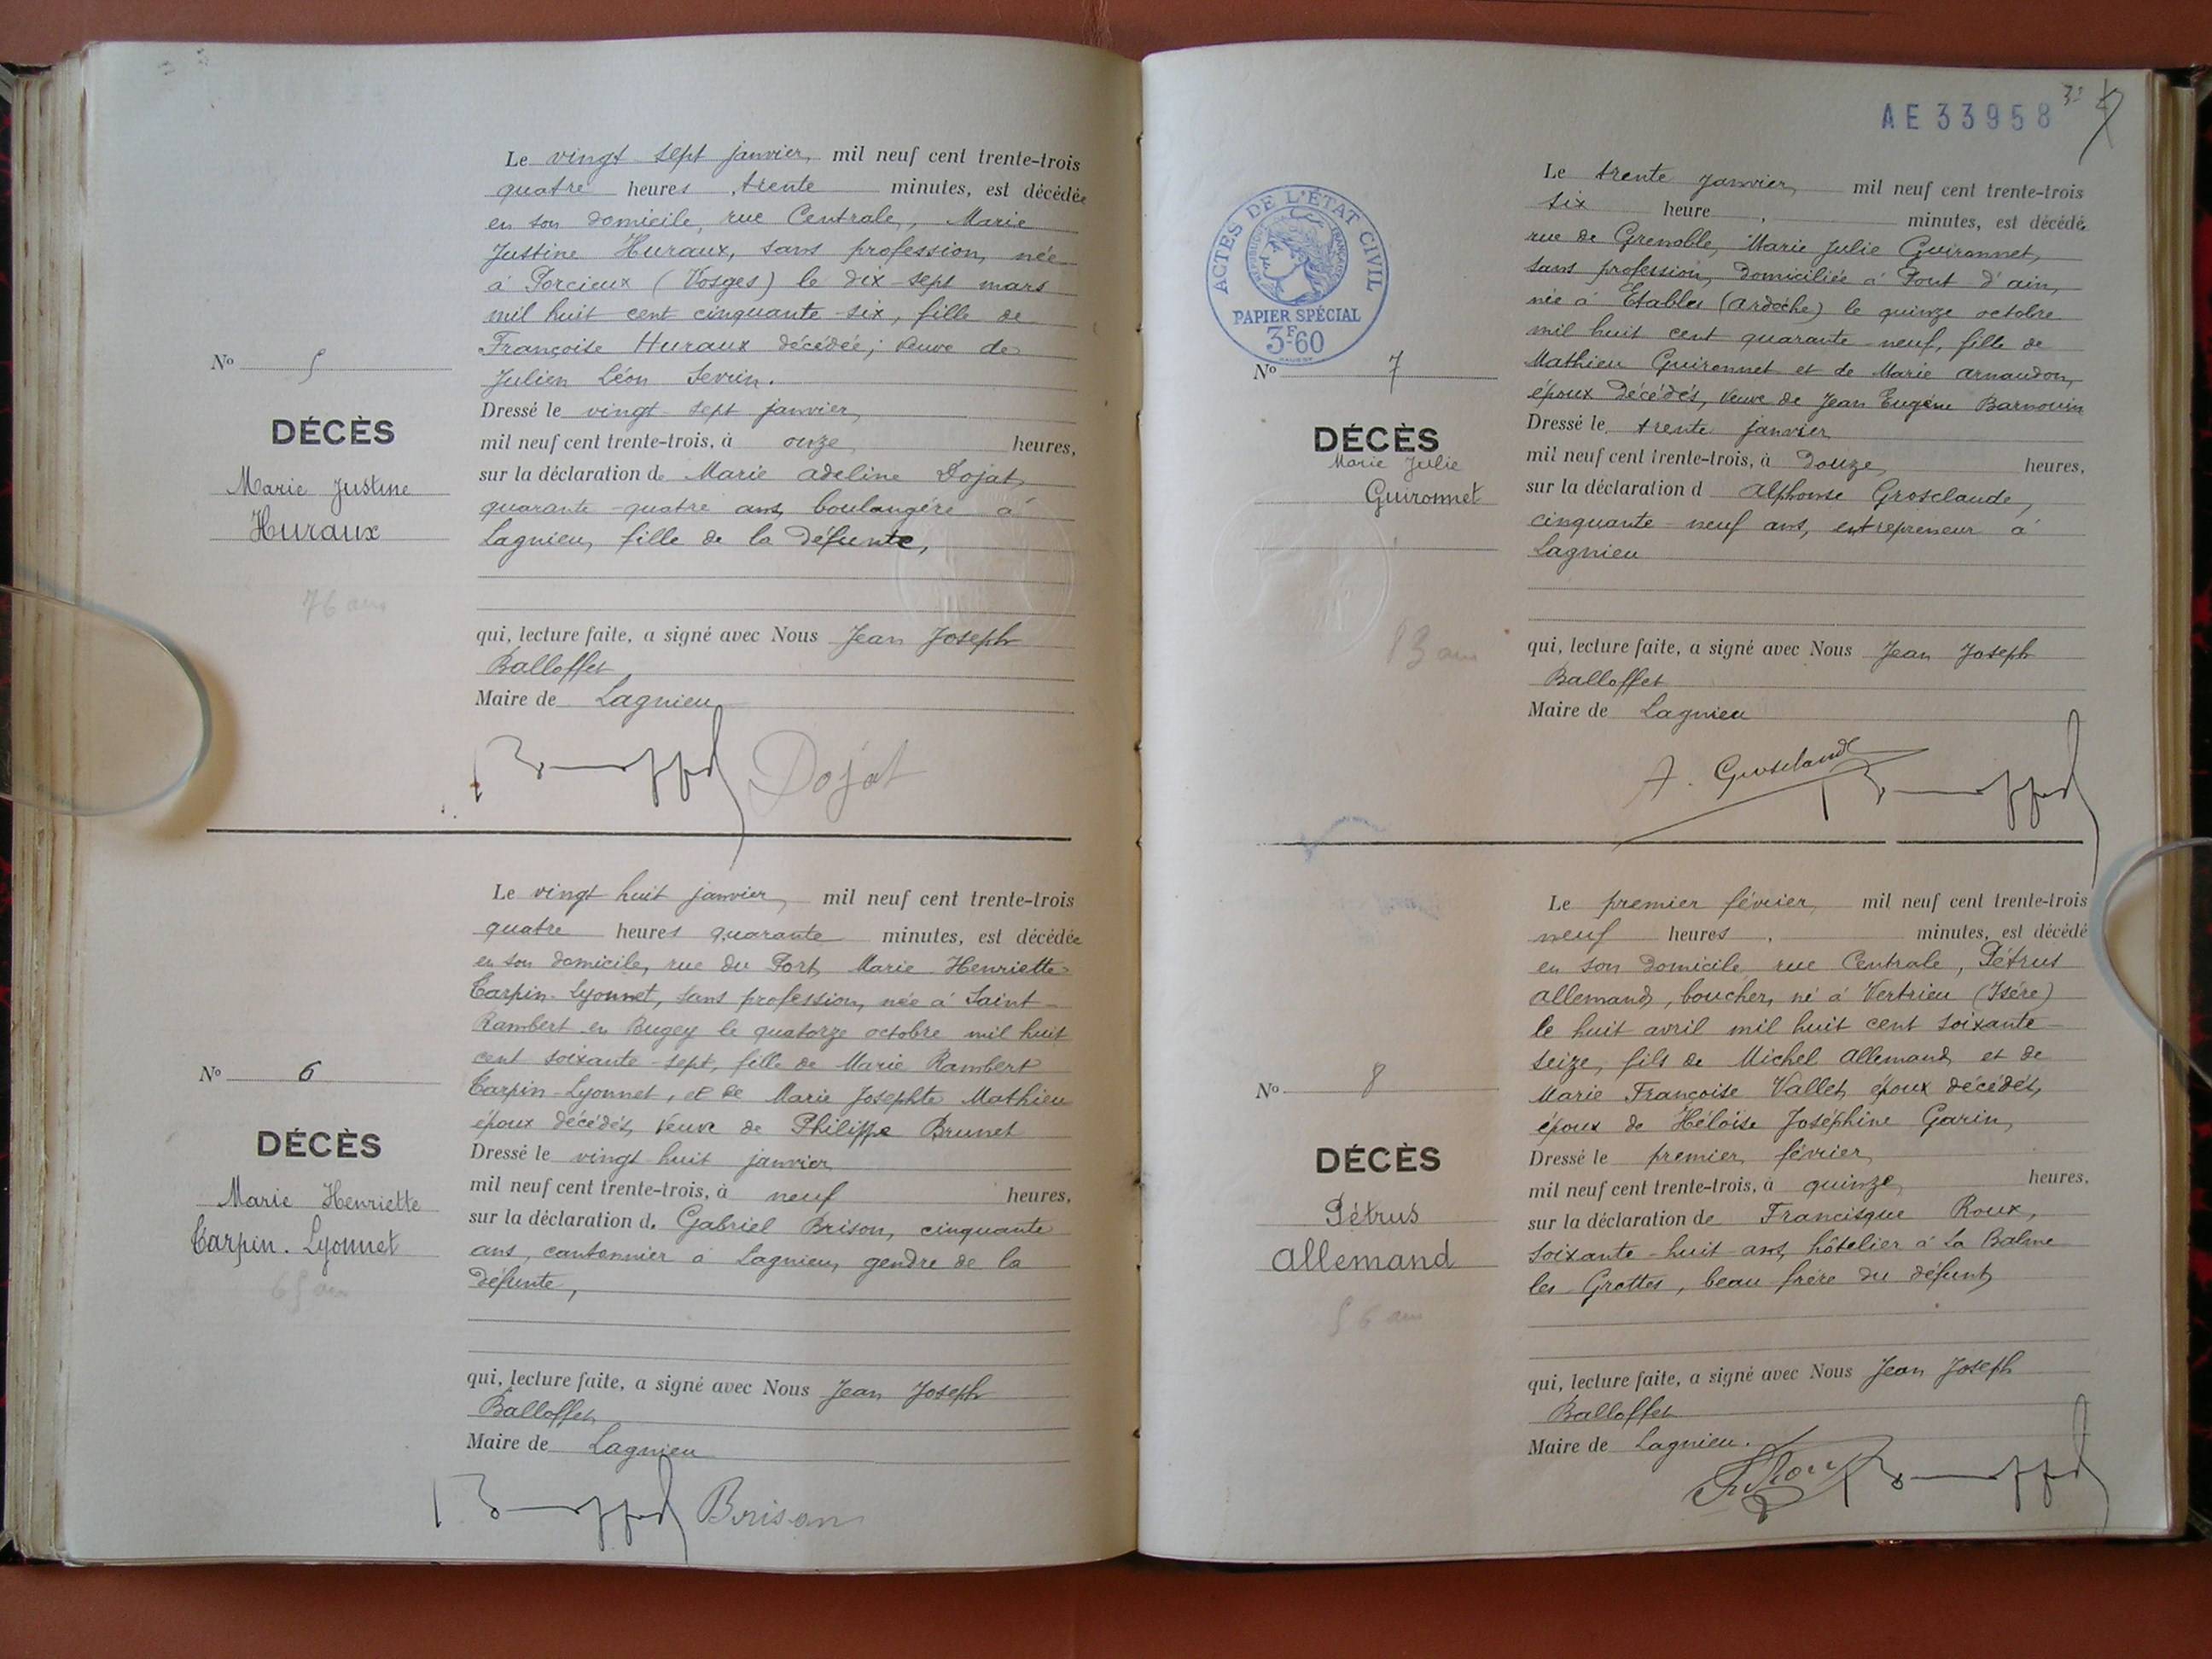 Le vingt sept janvier, mil neuf cent trente-trois
quatre heures trente minutes, est décédée
en son domicile, rue Centrale, Marie
Justine Huraux, sans profession, née
à Porcieux (Vosges) le dix-sept mars
mil huit cent cinquante-six, fille de
Françoise Huraux décédée; veuve de
Julien Léon Sevrin.
Dressé le vingt-sept janvier,
mil neuf cent trente-trois, à onze heures,
sur la déclaration de Marie Adeline Dojat,
quarante-quatre ans, boulangère à
Lagnieu, fille de la défunte,
qui, lecture faite, a signé avec Nous Jean Joseph
Balloffet
Maire de Lagnieu
Dojat
No 5
DÉCÈS
Marie Justine
Huraux
76 ans
Le vingt huit janvier, mil neuf cent trente-trois
quatre heures quarante minutes, est décédée
en son domicile, rue du Port, Marie Henriette
Carpin-Lyonnet, sans profession, née à Saint-
Rambert en Bugey le quatorze octobre mil huit
cent soixante-sept, fille de Marie Rambert
Carpin-Lyonnet, et de Marie Josephte Mathieu
époux décédés, veuve de Philippe Brunet
Dressé le vingt-huit janvier
mil neuf cent trente-trois, à neuf heures,
sur la déclaration de Gabriel Brison, cinquante
ans, cantonnier à Lagnieu, gendre de la
défunte,
qui, lecture faite, a signé avec Nous Jean Joseph
Balloffet
Maire de Lagnieu
Brison
No 6
DÉCÈS
Marie Henriette
Carpin-Lyonnet
65 ans
AE 33958
ACTES DE L'ÉTAT CIVIL
PAPIER SPÉCIAL
3F60
Le trente janvier, mil neuf cent trente-trois
six heure minutes, est décédé
rue de Grenoble, Marie Julie Guironnet,
sans profession, domiciliée à Pont d'ain,
née à Etables (Ardèche) le quinze octobre
mil huit cent quarante-neuf, fille de
Mathieu Guironnet et de Marie Arnaudon,
époux décédés, veuve de Jean Eugène Barnouin
Dressé le trente janvier
mil neuf cent trente-trois, à douze heures,
sur la déclaration d Alphonse Grosclaude,
cinquante-neuf ans, entrepreneur à
Lagnieu
qui, lecture faite, a signé avec Nous Jean Joseph
Balloffet
Maire de Lagnieu
A. Grosclaude
No 7
DÉCÈS
Marie Julie
Guironnet
83 ans
Le premier février, mil neuf cent trente-trois
neuf heures minutes, est décédé
en son domicile rue Centrale, Pétrus
Allemand, boucher, né à Vertrieu (Isère)
le huit avril mil huit cent soixante-
seize, fils de Michel Allemand et de
Marie Françoise Vallet, époux décédés,
époux de Héloise Joséphine Garin,
Dressé le premier février,
mil neuf cent trente-trois, à quinze heures,
sur la déclaration de Francisque Roux,
soixante-huit ans, hôtelier à La Balme
les Grottes, beau frère du défunt,
qui, lecture faite, a signé avec Nous Jean Joseph
Balloffet
Maire de Lagnieu.
No 8
DÉCÈS
Pétrus
Allemand
56 ans